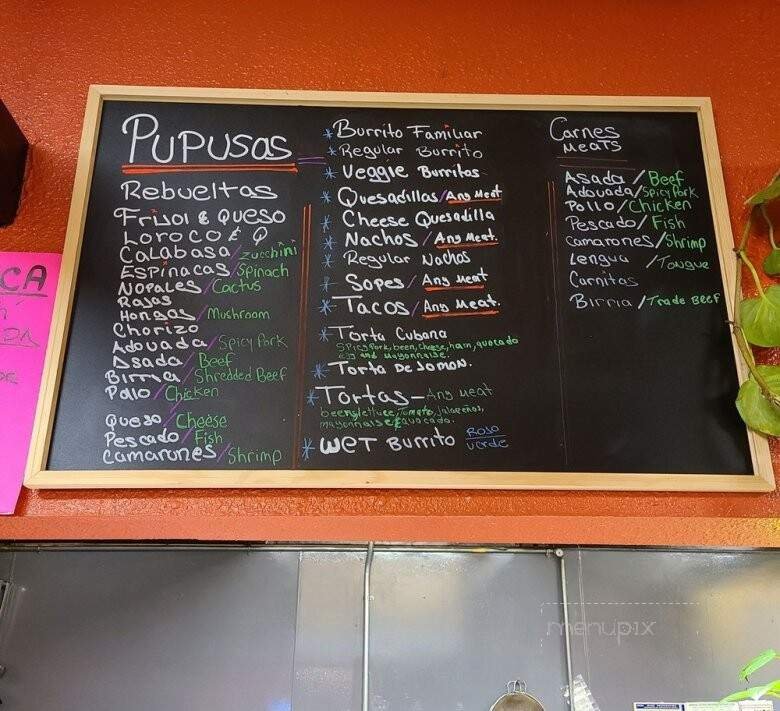 PUPUSAS
Rebueltas
Frijol & Queso
Loroco & Q
Calabasa/zucchini
Espinacas/Spinach
Nopales/Cactus
Rajas
Hongos/Mushroom
Chorizo
Adovada/Spicy Pork
Asada/Beef
Birria/Shredded Beef
Pollo/Chicken
Queso/Cheese
Pescado/Fish
Camarones/Shrimp
* Burrito Familiar
* Regular Burrito
* Veggie Burritos
* Quesadillas/Any Meat
* Cheese Quesadilla
* Nachos/Any Meat.
* Regular Nachos
* Sopes/Any Meat
* Tacos/Any Meat.
* Torta Cubana
Spicy Pork, been, cheese, ham, avocado
egg and mayonnaise.
* Torta De Jamon.
* Tortas- Any Meat
beens, lettuce, tomato, jalapeños,
mayonnaise & avocado.
* Wet Burrito
verde
Carnes
Meats
Asada/Beef
Adovada/Spicy Pork
Pollo/Chicken
Pescado/Fish
Camarones/Shrimp
Lengua/Tongue
Carnitas
Birria/Trade Beef
CA
menupix